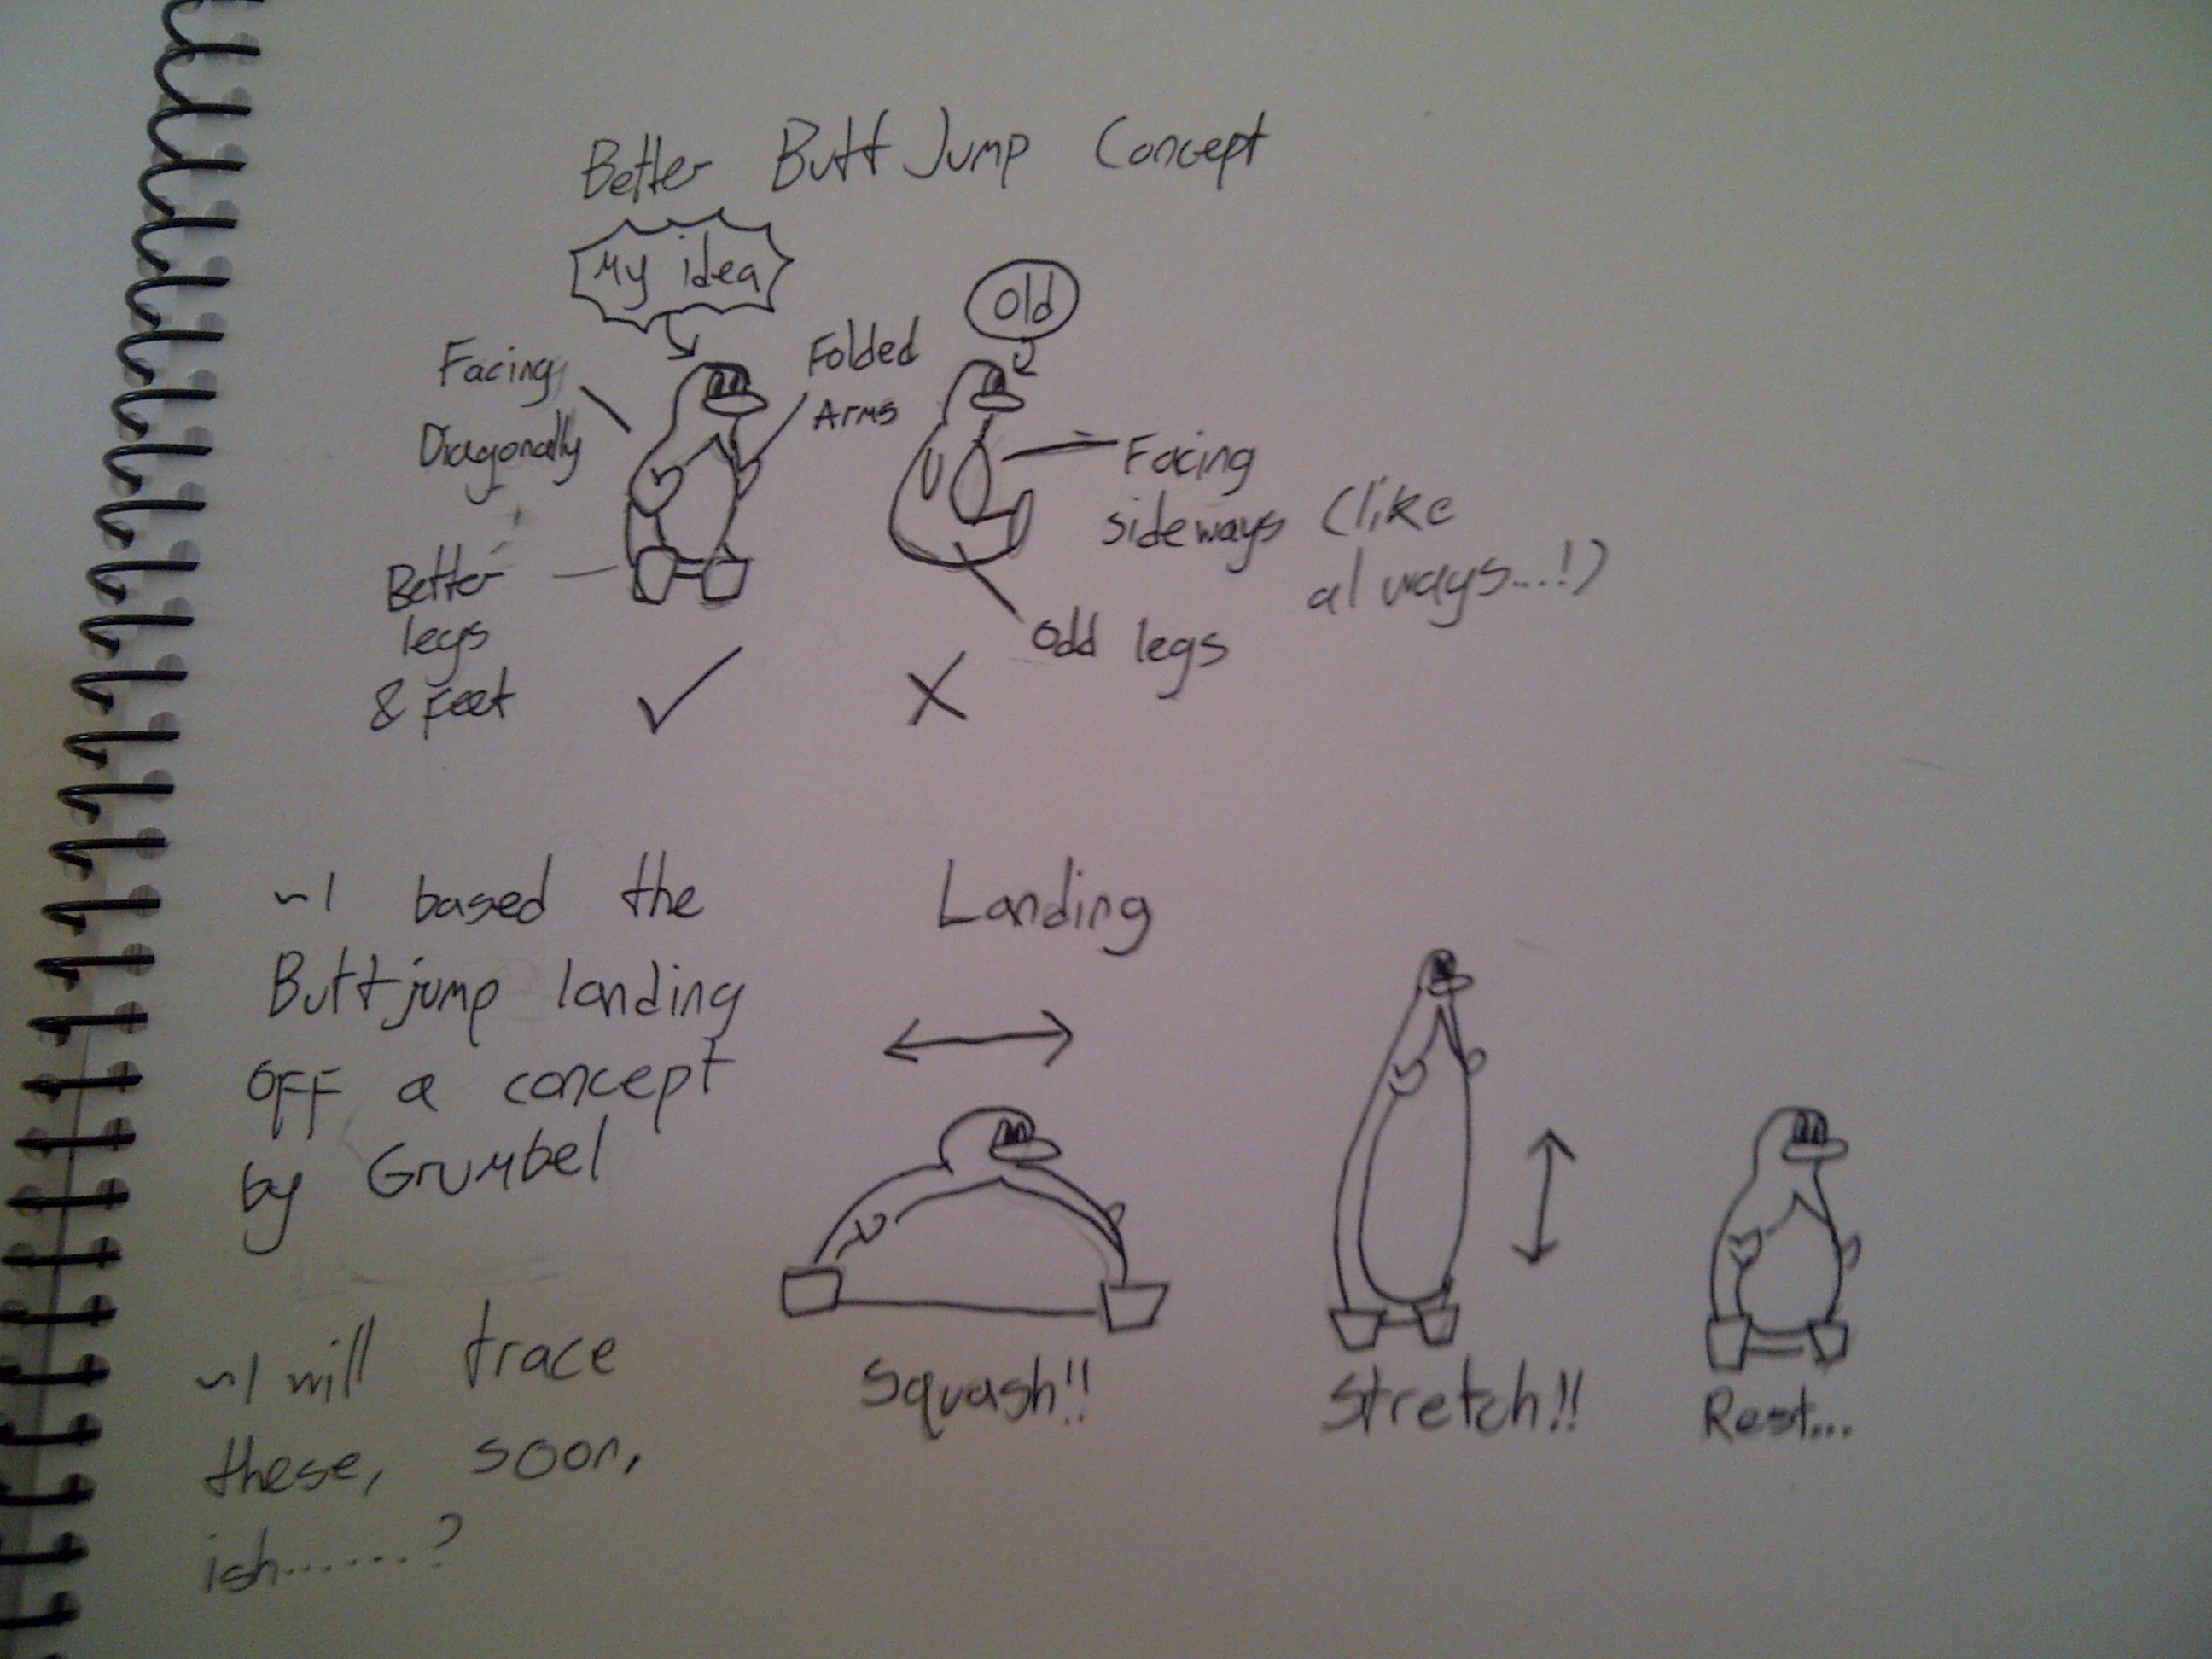 Better Butt Jump Concept
My idea
Old
Facing
Diagonally
Folded
Arms
Better
legs
& Feet
Facing
sideways (like
always...!)
Odd legs
~I based the
Buttjump landing
off a concept
by Grumbel
~I will trace
these, soon,
ish.......?
Landing
Squash!!
Stretch!!
Rest...